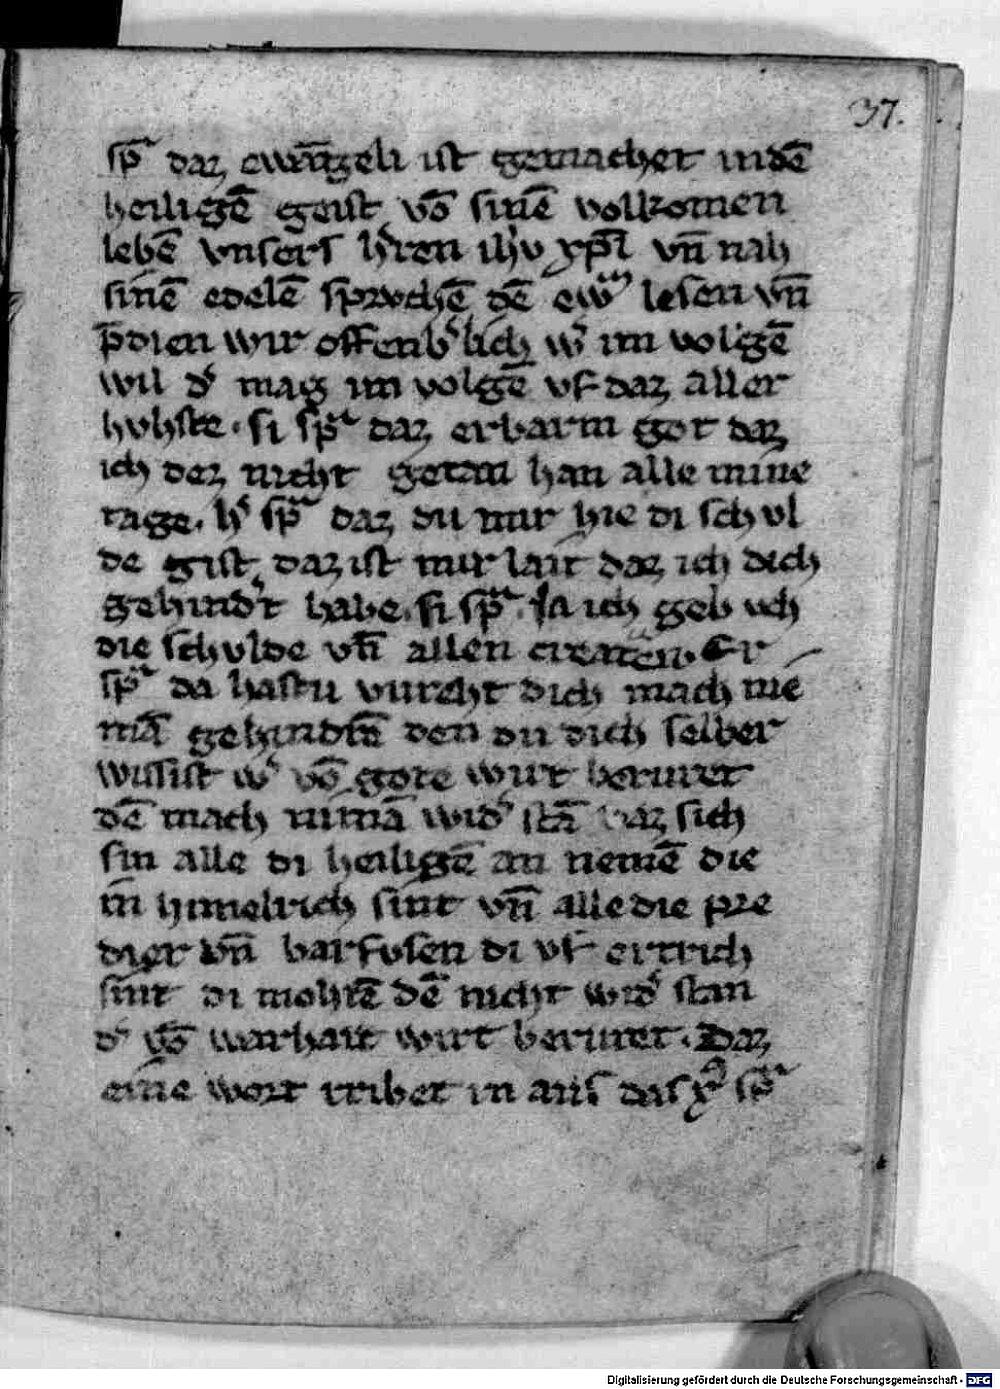 37.
sp̄ᵃ daz ewāngeli ist gemachet in dē
heiligē geist vō sinē vollkomen
lebē vnsers h̓ren ih̄u xp̄i vn̄ nah
sinē edelē sprvchē dē ewᵃⁿ lesen vn̄
p̄dien wir offenb̓lich w̓ im volgē
wil d̓ mag im volgē vf daz aller
hohste · si sp̄ᵃ daz erbarm got daz
ich dez nicht getan han alle mine
tage . h̓ sp̄ᵃ daz du mir hie di schvl
de gist daz ist mir lait daz ich dich
gehind̓t habe . si sp̄ᵃ . Ja ich geb vch
die schvlde vn̄ allen creatūren Er
sp̄ᵃ da hastu vurcht dich mach nie
mā gehindrē den du dich selber
wissist w̓ vō gote wirt beruret
dē mach nimā wid̓ stā daz sich
sin alle di heiligē an nemē die
in himelrich sint vn̄ alle die pre
diger vn̄ barfvsen di vf ertrich
sint di mohtē dē nicht wid̓ stan
d̓ vō warhait wirt beruret . Daz
eine wort tribet in aūs das xp̄c sp̄ᵃ
Digitalisierung gefördert durch die Deutsche Forschungsgemeinschaft - DFG